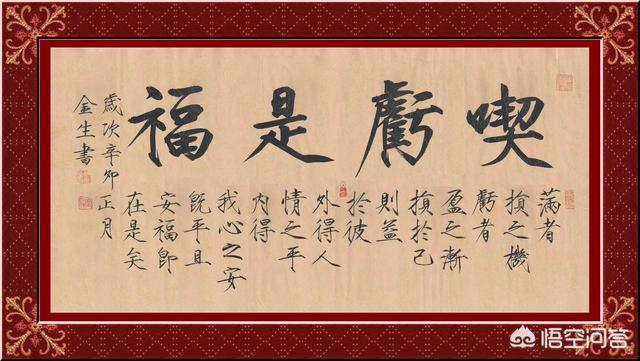 喫虧是福
滿者
損之機
虧者
盈之漸
損於己
則益
於彼
外得人
情之平
內得
我心之安
既平且
安福即
在是矣
歲次辛卯正月
金生書
悟空问答